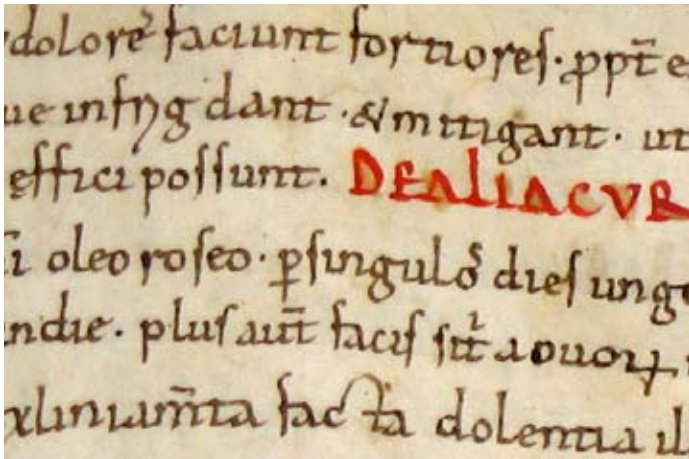 dolorē faciunt fortiores· ꝓpt̄ e
ue infrigdant· & mitigant· ut
effici possunt. DE ALIA CUR
oleo roseo· ꝑ singulos dies ung
in die. plus aūt facis sit̄ a ouoꝝ
liniam̄ta facta dolentia il